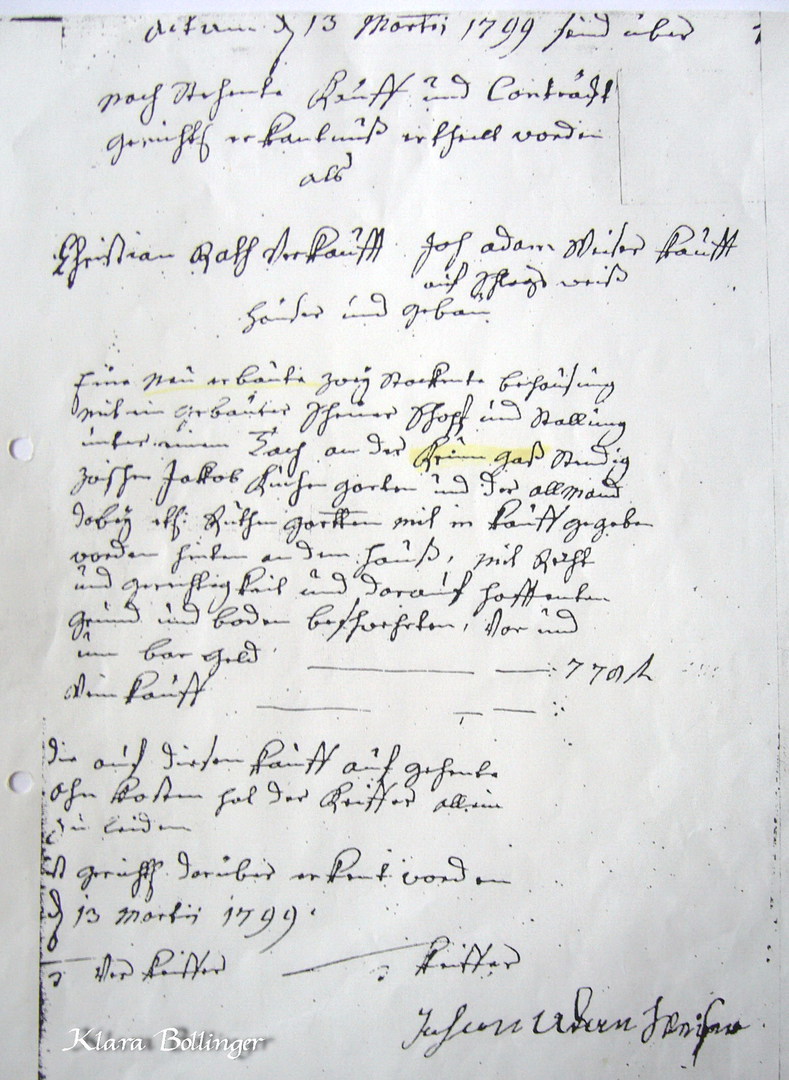 Actum d 13 Martii 1799 sind über
nach Stehente Käuff und Conträckt
gerichts erkantnuß ertheilt worden
als
Christian Rath Verkaufft Joh adam Weiser kaufft
auf Schlags weiß
Häuser und gebäu
Eine Neu erbaute zwey Stockente behausung
mit in gebauter Scheuer Schopf und Stallung
unter einem Tach an der gaß Stendig
zwischen Jakob Küchen garten und der allmand
dabey Ruthen gartten mit in kauff gegeben
worden hinten an dem Hauß, mit Recht
und gerechtigkeit und darauf hafftenten
grund und boden beschwehrten, Vor und
um bar geld
Wein kauff
die auf diesen kauff auf gehente
ohn kosten hat der Keiffer allein
zu leiden
ist gerichts darüber erkent worden
d 13 Martii 1799.
Ver keiffer Keiffer
Johann Adam Weiser
Klara Bollinger